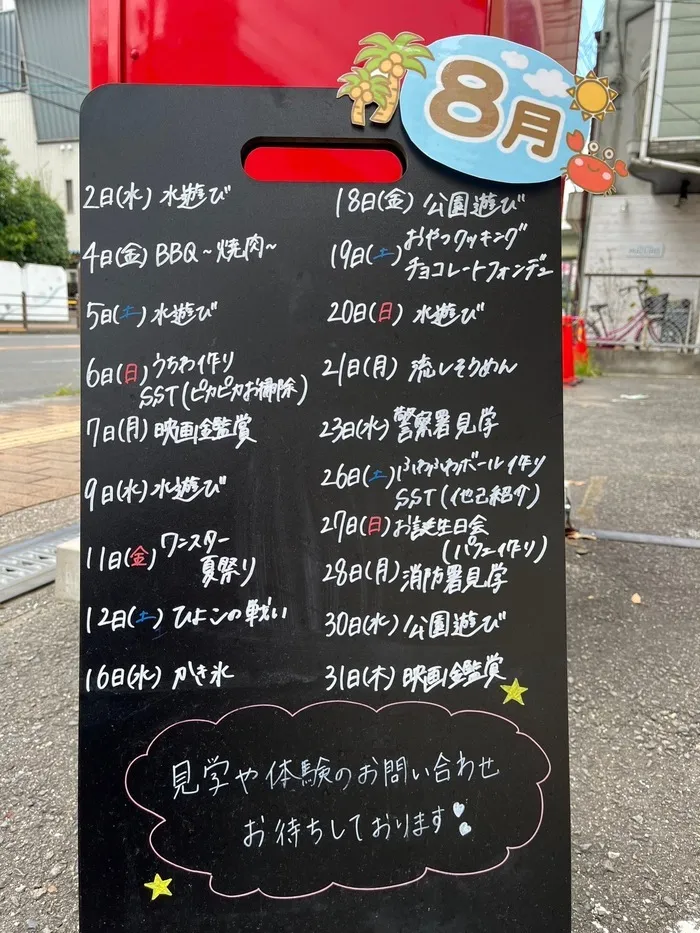 8月
2日(水) 水遊び
4日(金) BBQ～焼肉～
5日(土) 水遊び
6日(日) うちわ作り
SST(ピカピカお掃除)
7日(月) 映画鑑賞
9日(水) 水遊び
11日(金) ワンスター
夏祭り
12日(土) ひよこの戦い
16日(水) かき氷
18日(金) 公園遊び
19日(土) おやつクッキング
チョコレートフォンデュ
20日(日) 水遊び
21日(月) 流しそうめん
23日(水) 警察署見学
26日(土) ふわふわボール作り
SST(他己紹介)
27日(日) お誕生日会
(パフェ作り)
28日(月) 消防署見学
30日(水) 公園遊び
31日(木) 映画鑑賞
見学や体験のお問い合わせ
お待ちしております